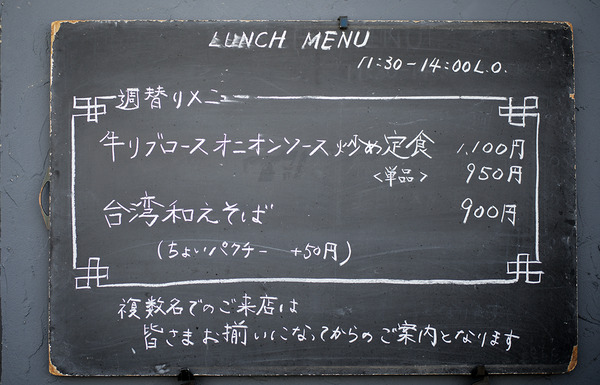 LUNCH MENU
11:30-14:00 L.O.
週替りメニュー
牛リブロースオニオンソース炒め定食 1,100円
<単品> 950円
台湾和えそば 900円
(ちょいパクチー +50円)
複数名でのご来店は
皆さまお揃いになってからのご案内となります